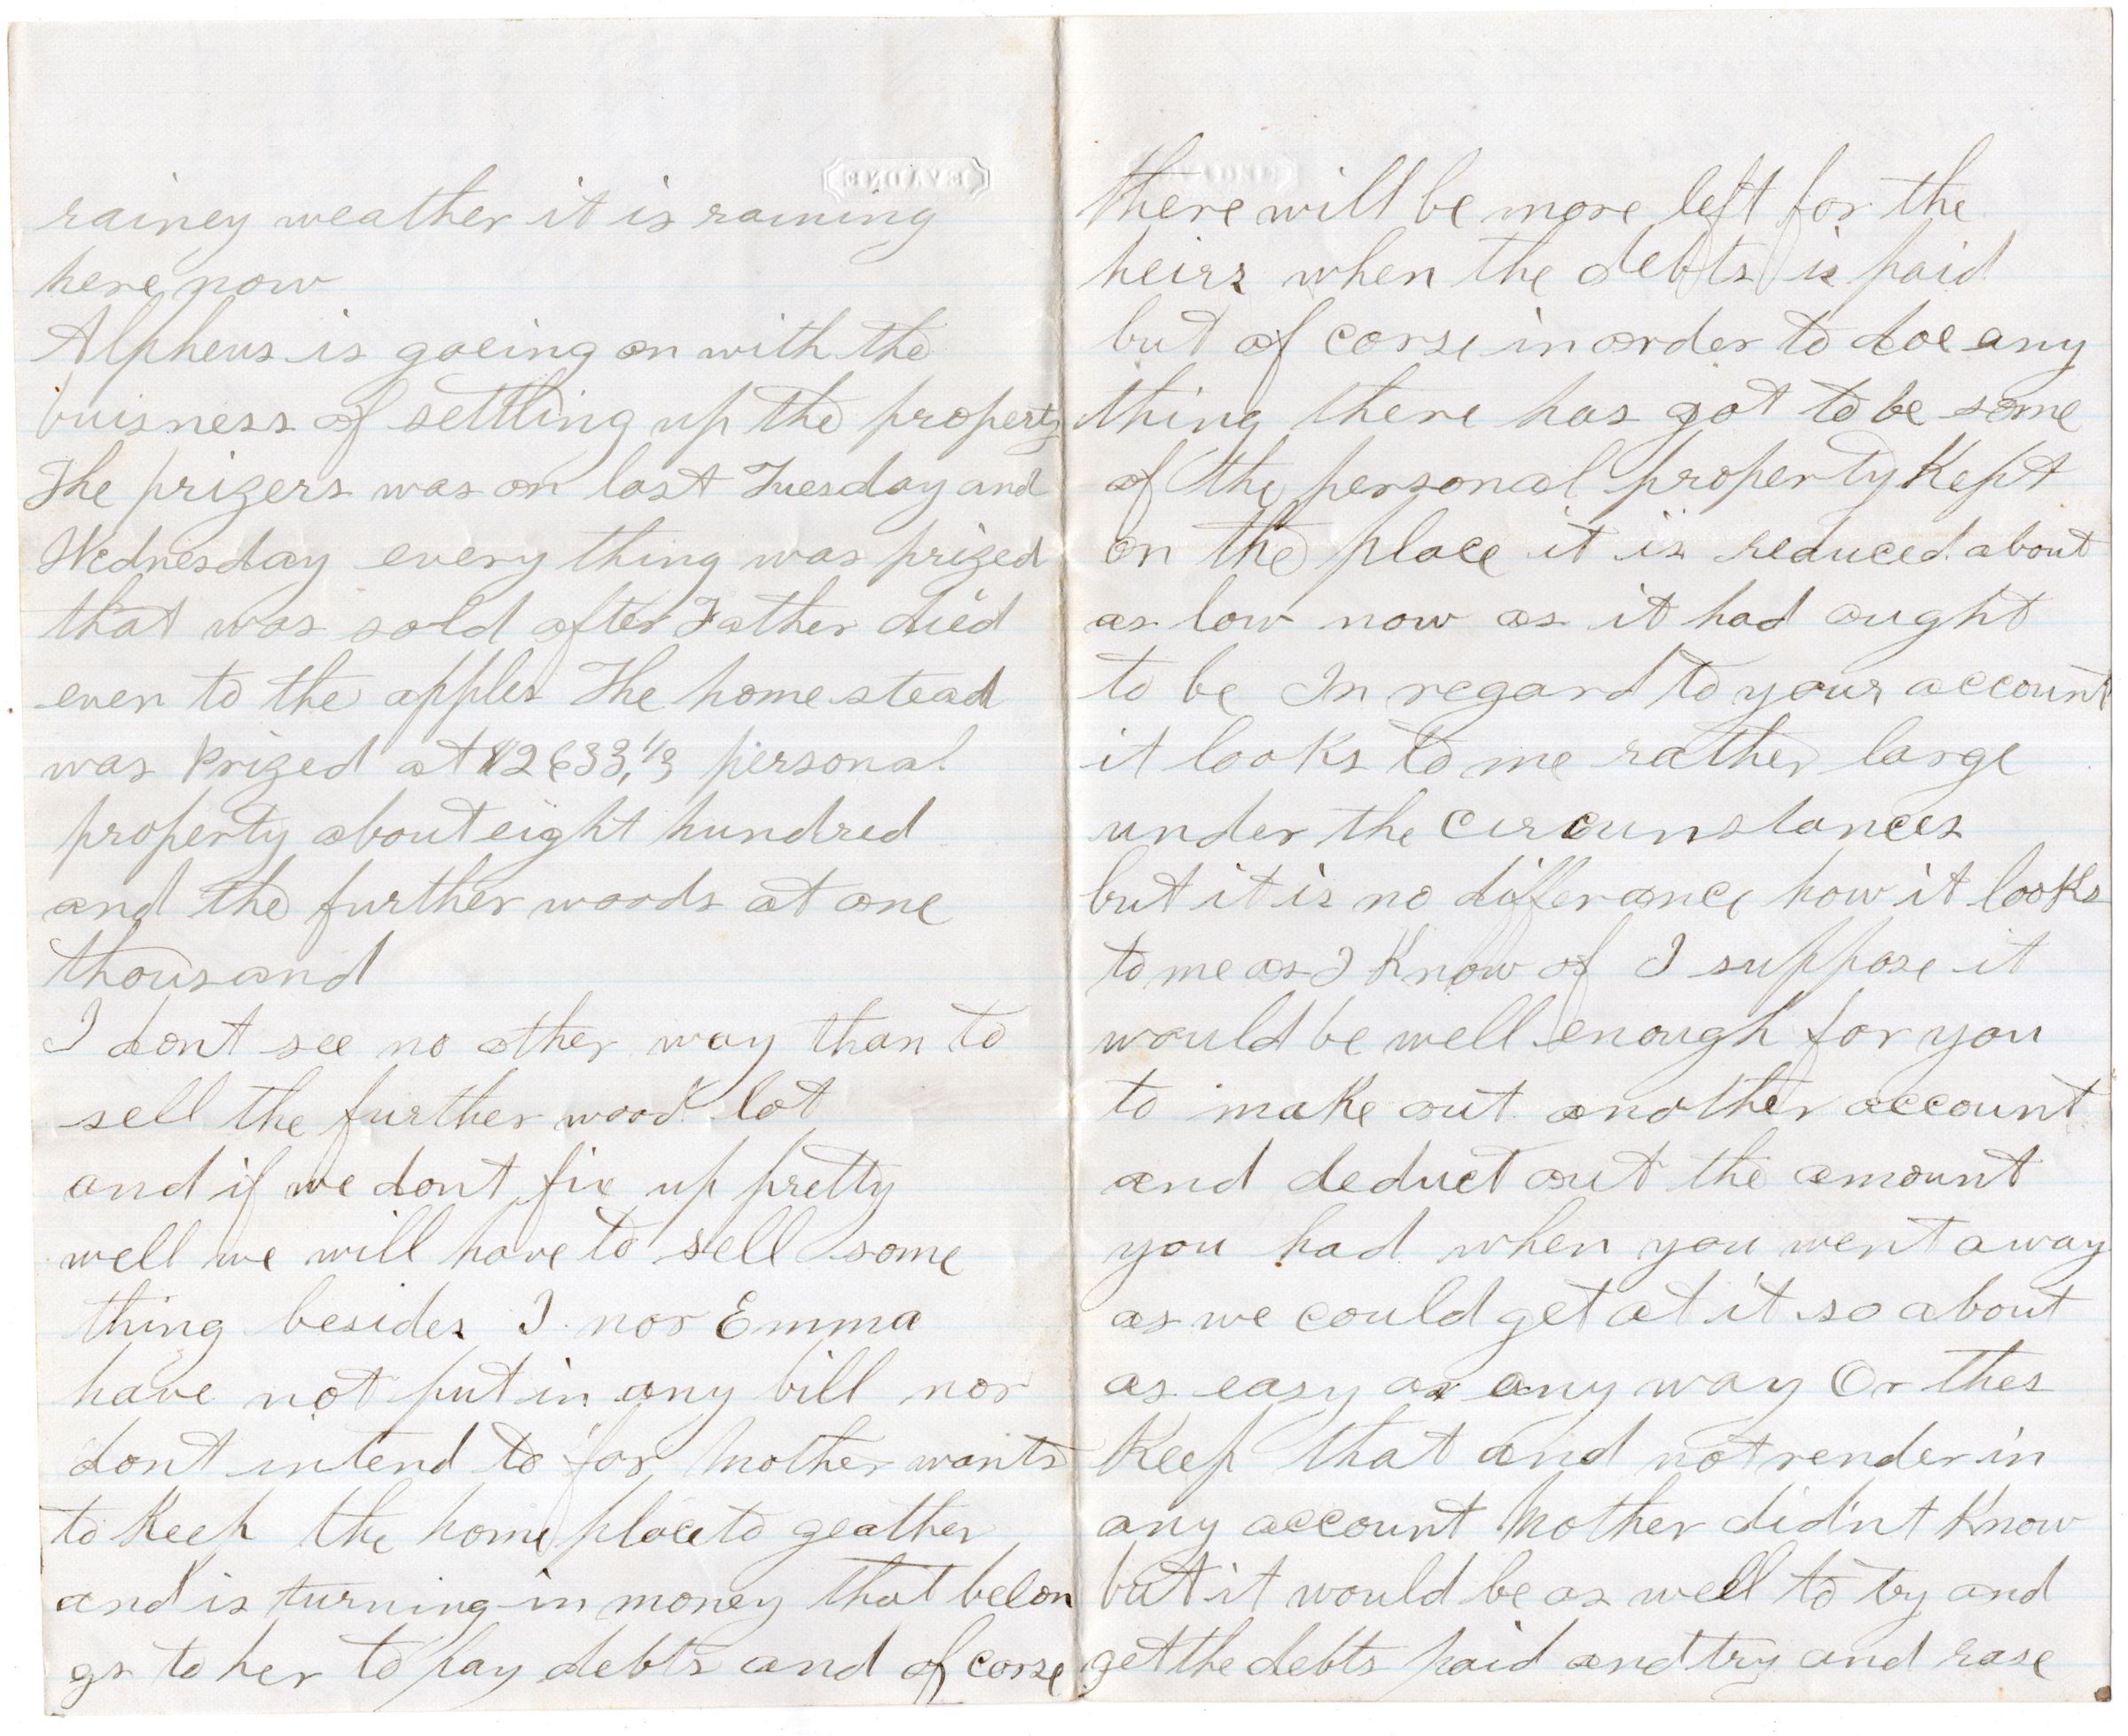 rainey weather it is raining
here now
Alpheus is goeing on with the
buisness of settling up the property
The prizers was on last Tuesday and
Wednesday every thing was prized
that was sold after Father died
even to the apples The home stead
was prized at $2633,1/3 personal
property about eight hundred
and the further woods at one
thousand
I dont see no other way than to
sell the further wood lot
and if we dont fix up pretty
well we will have to sell some
thing besides I nor Emma
have not put in any bill nor
dont intend to for Mother wants
to Keep the home place to geather
and is turning in money that belon
gs to her to pay debts and of corse
there will be more left for the
heirs when the debts is paid
but of corse in order to doe any
thing there has got to be some
of the personal property Kept
on the place it is reduced about
as low now as it had ought
to be In regard to your account
it looks to me rather large
under the circumstances
but it is no differance how it looks
to me as I Know of I suppose it
would be well enough for you
to make out another account
and deduct out the amount
you had when you went away
as we could get at it so about
as easy as any way Or thes
Keep that and not render in
any account Mother didnt Know
but it would be as well to try and
get the debts paid and try and rase